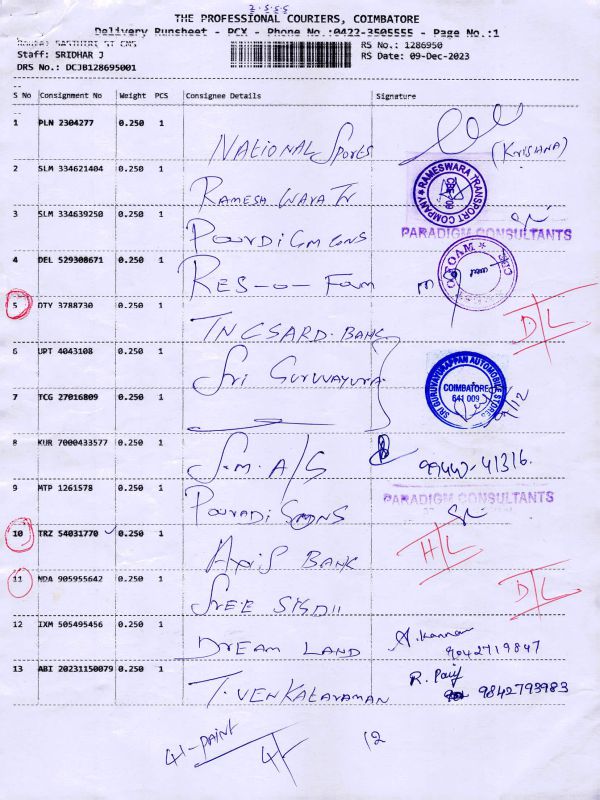 THE PROFESSIONAL COURIERS, COIMBATORE
Delivery Runsheet - PCX - Phone No.:0422-3505555 - Page No.:1
RS No.: 1286950
Staff: SRIDHAR J RS Date: 09-Dec-2023
DRS No.: DCJB128695001
S No Consignment No Weight PCS Consignee Details Signature
1 PLN 2304277 0.250 1 National Sports (KRISHNA)
2 SLM 334621404 0.250 1 RAMESHWARA Tr
RAMESWARA TRANSPORT COMPANY
3 SLM 334639250 0.250 1
PARADIGM CONSULTANTS
4 DEL 529308671 0.250 1 RES-O-Foam
5 DTY 3788730 0.250 1 TNCSARD. BANK D/L
6 UPT 4043108 0.250 1 Sri Guruvayura
SRI GURUVAYURAPPAN AUTOMOBILE STORES
COIMBATORE
641 009
7 TCG 27016809 0.250 1
8 KUR 7000433577 0.250 1 S.M. A/S 99442-41316.
9 MTP 1261578 0.250 1
PARADIGM CONSULTANTS
10 TRZ 54031770 0.250 1 AXIS BANK H/L
11 NDA 905955642 0.250 1 SREE D/L
12 IXM 505495456 0.250 1 DREAM LAND A. Kannan
9042719847
13 ABI 20231150079 0.250 1 T. VENKATARAMAN R.
9842793983
41-PAINT 12